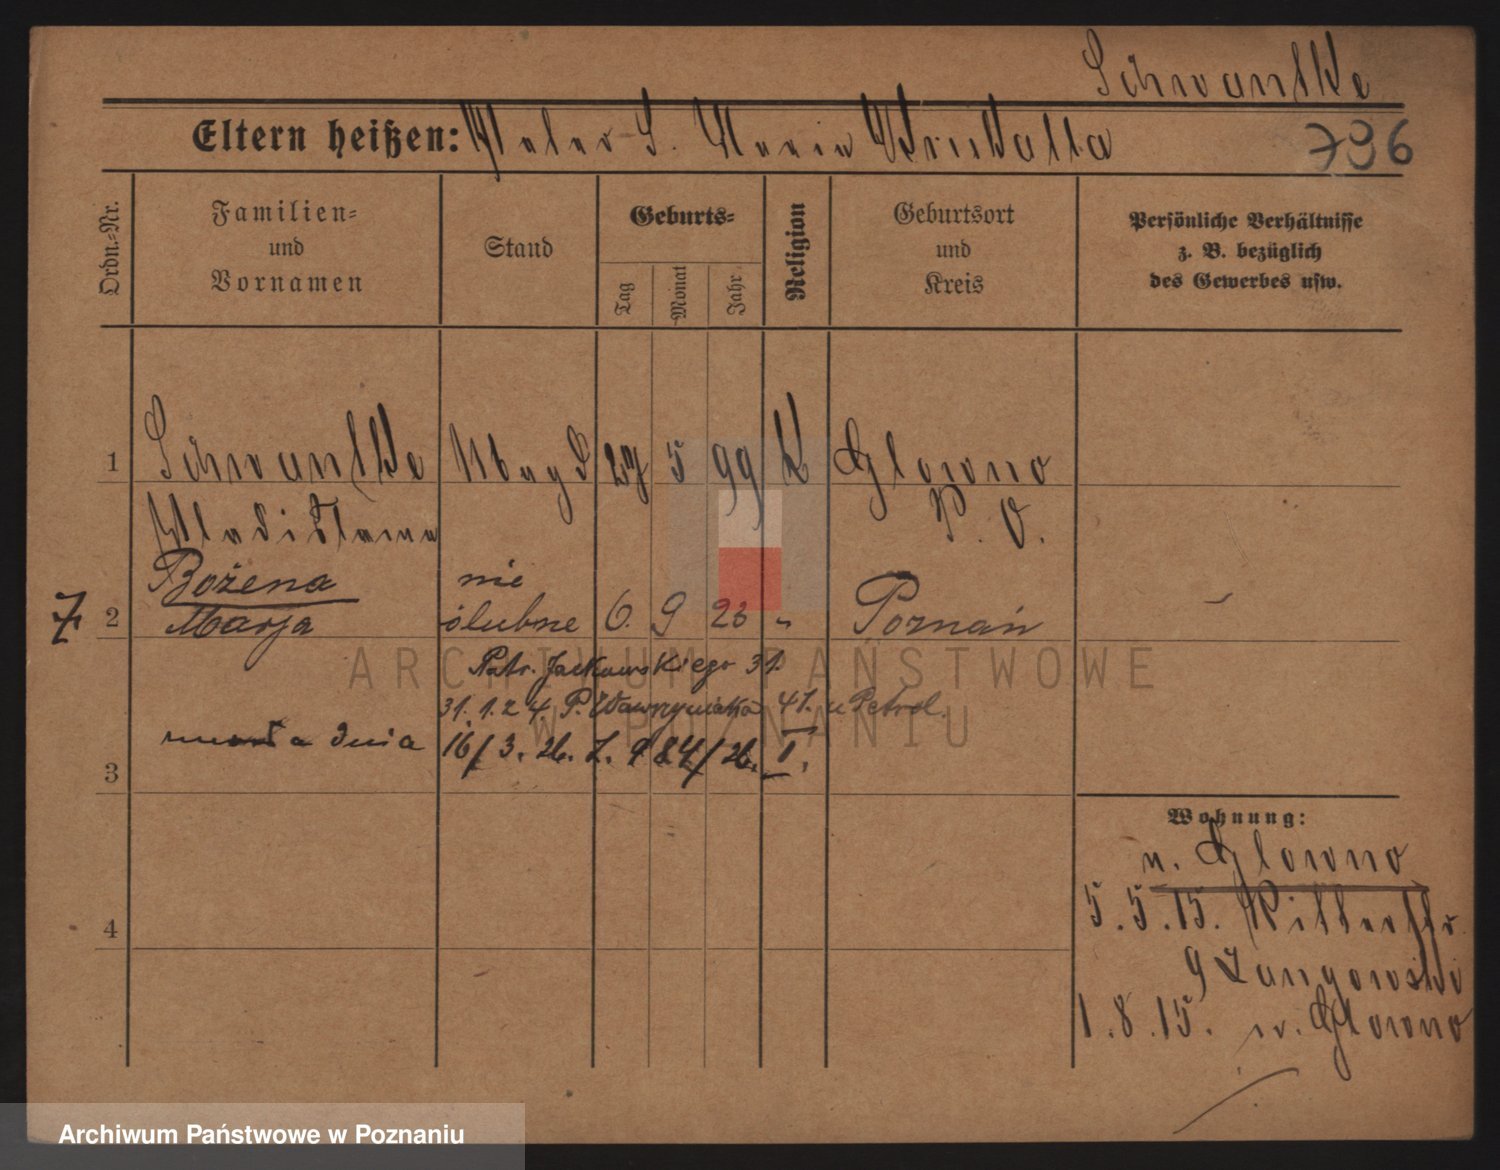 Schwanthe
Eltern heißen: Peter S. Maria
796
Ordn.-Nr.
Familien-
und
Vornamen
Stand
Geburts-
Tag
Monat
Jahr
Religion
Geburtsort
und
Kreis
Persönliche Verhältnisse
z. B. bezüglich
des Gewerbes usw.
1 Schwanthe Magd 27 5 99 K Glowno
Wladislawa P. O.
Bożena nie
7 2 Marja ślubne 6. 9 23 " Poznań
Ptr. Jackowskiego 31.
31.1.24. P. Wawrzyniaka 41. u Petrel.
zmarła dnia 16/3. 26. L. 984/26. I.
3
4
Wohnung:
n. Glowno
5.5.15. Ritterstr.
9 Zangowski
1.8.15. n. Glowno
ARCHIWUM PAŃSTWOWE
W POZNANIU
Archiwum Państwowe w Poznaniu